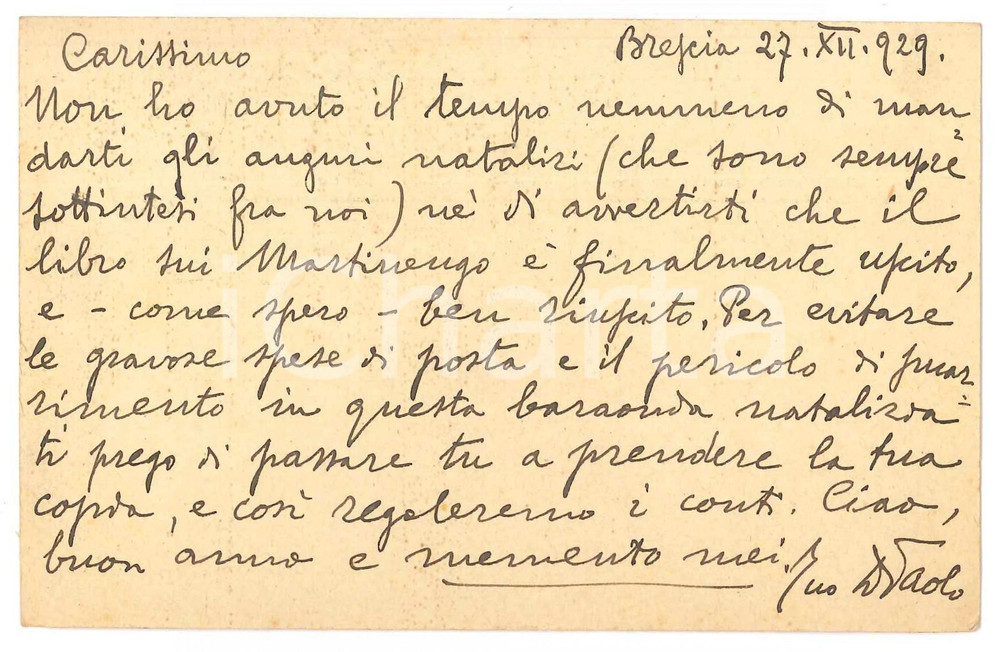 Carissimo
Brescia 27.XII.929.
Non ho avuto il tempo nemmeno di man
darti gli auguri natalizi (che sono sempre
sottintesi fra noi) nè di avvertirti che il
libro sui Martinengo è finalmente uscito,
e - come spero - ben riuscito. Per evitare
le gravose spese di posta e il pericolo di smar-
rimento in questa baraonda natalizia
ti prego di passare tu a prendere la tua
copia, e così regoleremo i conti. Ciao,
buon anno e memento mei. Tuo D Paolo
iCharta